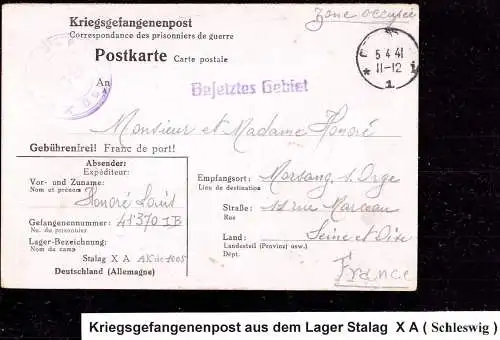 Kriegsgefangenenpost
Correspondance des prisonniers de guerre
Zone occupée
Postkarte Carte postale
5 4 41
11-12
1
An
A
Besetztes Gebiet
Monsieur et Madame Honoré
Gebührenfrei! Franc de port!
Absender:
Expéditeur:
Vor- und Zuname:
Nom et prénom
Honoré Louis
Gefangenennummer:
No. du prisonnier
Lager-Bezeichnung:
Nom du camp
Stalag X A
Deutschland (Allemagne)
Empfangsort: Morsang s. Orge
Lieu de destination
Straße: rue Marceau
Rue
Land: Seine et Oise
Landesteil (Provinz) usw.)
Dépt.
France
Kriegsgefangenenpost aus dem Lager Stalag X A ( Schleswig )